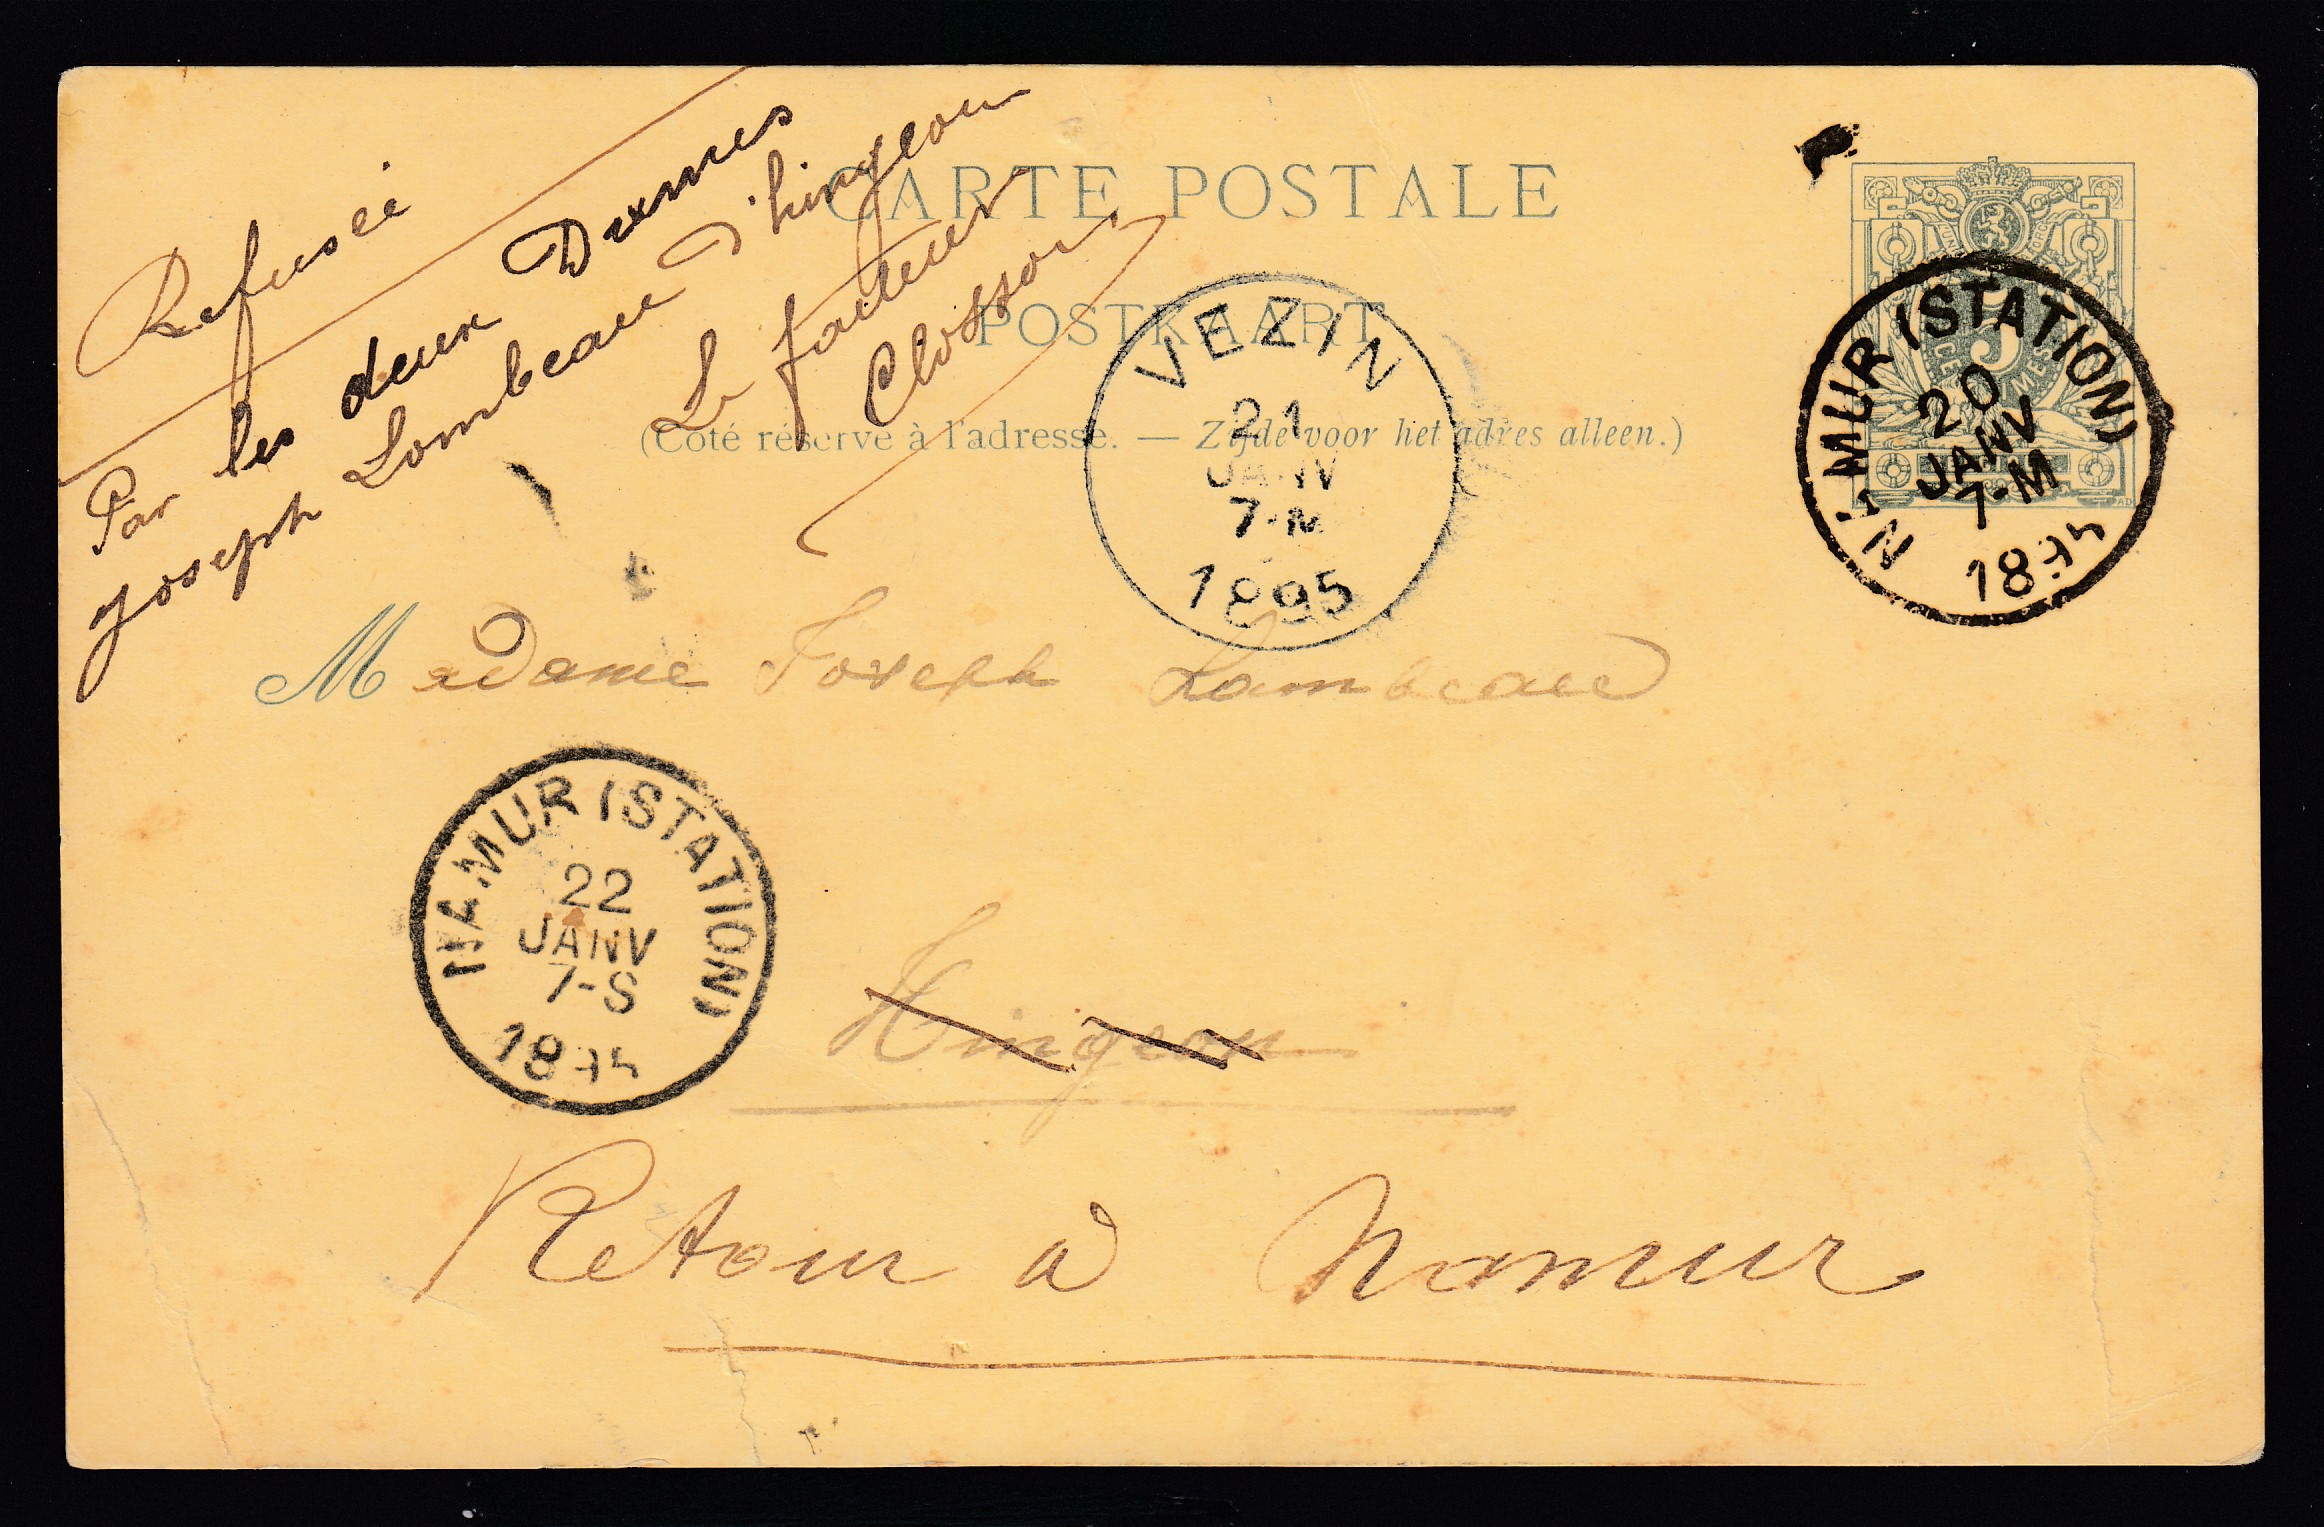 Refusée
Par les deux Dames
Joseph Lambeau d'hingeon
Le facteur
Closson
CARTE POSTALE
POSTKAART
(Côté réservé à l'adresse. — Zijde voor het adres alleen.)
5
NAMUR (STATION)
20
JANV
7-M
1895
VEZIN
21
JANV
7-M
1895
Madame Joseph Lambeau
NAMUR (STATION)
22
JANV
7-S
1895
Hingeon
Retour à Namur